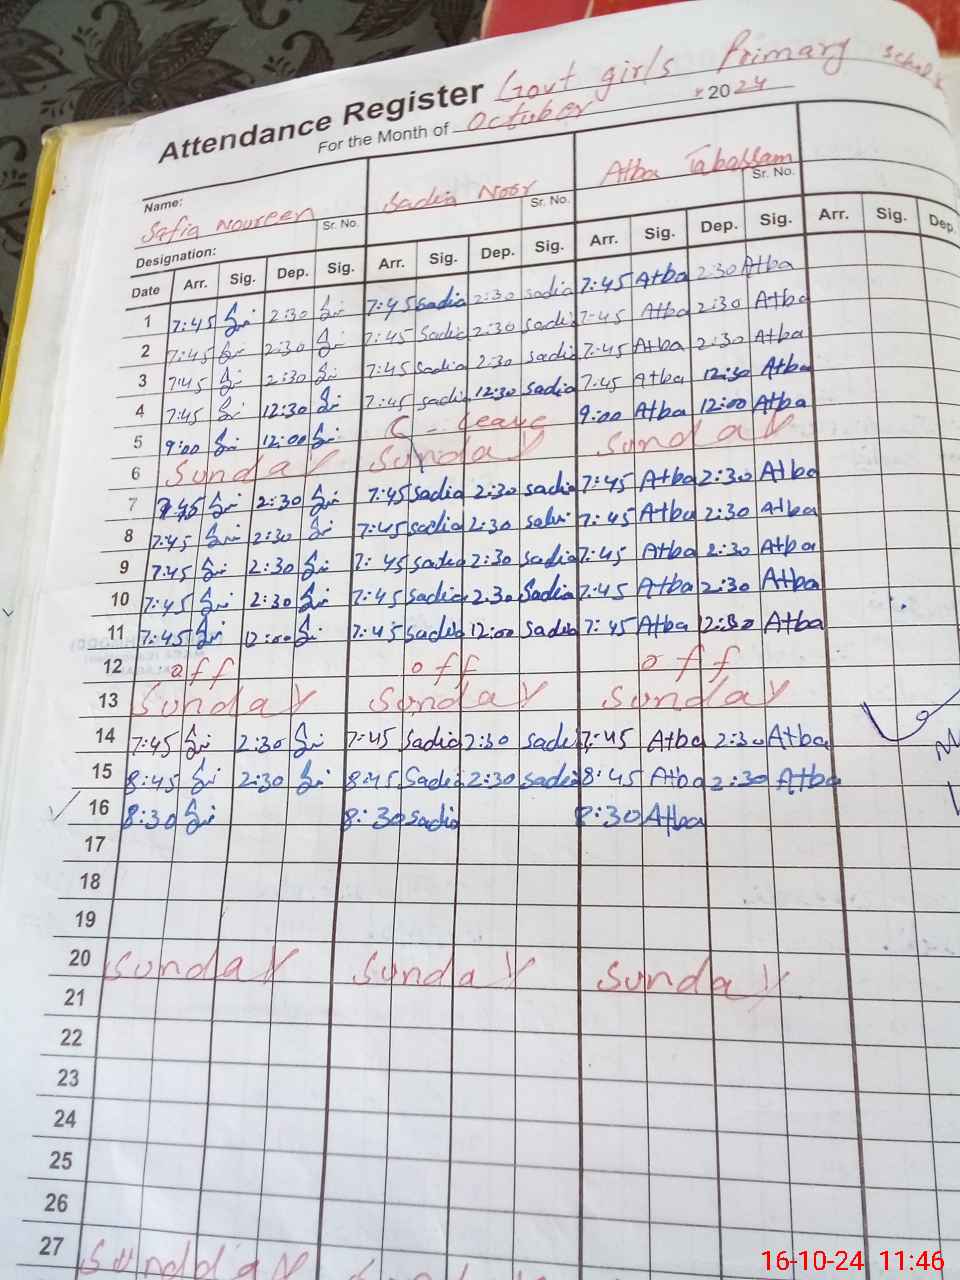 Attendance Register Govt girls Primary School
For the Month of October 2024
Name: Safia Noureen Sr. No. Sadia Noor Sr. No. Atba Tabassam Sr. No.
Designation:
Date Arr. Sig. Dep. Sig. Arr. Sig. Dep. Sig. Arr. Sig. Dep. Sig. Arr. Sig. Dep.
1 7:45 2:30 7:45 sadia 2:30 sadia 7:45 Atba 2:30 Atba
2 7:45 2:30 7:45 Sadia 2:30 sadia 7:45 Atba 2:30 Atba
3 7:45 2:30 7:45 sadia 2:30 sadia 7:45 Atba 2:30 Atba
4 7:45 12:30 7:45 sadia 12:30 sadia 7:45 Atba 12:30 Atba
5 9:00 12:00 C - leave 9:00 Atba 12:00 Atba
6 Sunday Sunday Sunday
7 7:45 2:30 7:45 sadia 2:30 sadia 7:45 Atba 2:30 Atba
8 7:45 2:30 7:45 sadia 2:30 7:45 Atba 2:30 Atba
9 7:45 2:30 7:45 sadia 2:30 sadia 7:45 Atba 2:30 Atba
10 7:45 2:30 7:45 sadia 2:30 Sadia 7:45 Atba 2:30 Atba
11 7:45 12:00 7:45 sadia 12:00 sadia 7:45 Atba Atba
12 off off off
13 Sunday Sunday Sunday
14 7:45 2:30 7:45 Sadia 2:30 sadia 7:45 Atba 2:30 Atba
15 8:45 2:30 8:45 Sadia 2:30 sadia 8:45 Atba 2:30 Atba
16 8:30 8:30 sadia 8:30 Atba
17
18
19
20 Sunday Sunday Sunday
21
22
23
24
25
26
27 Sundday
16-10-24 11:46